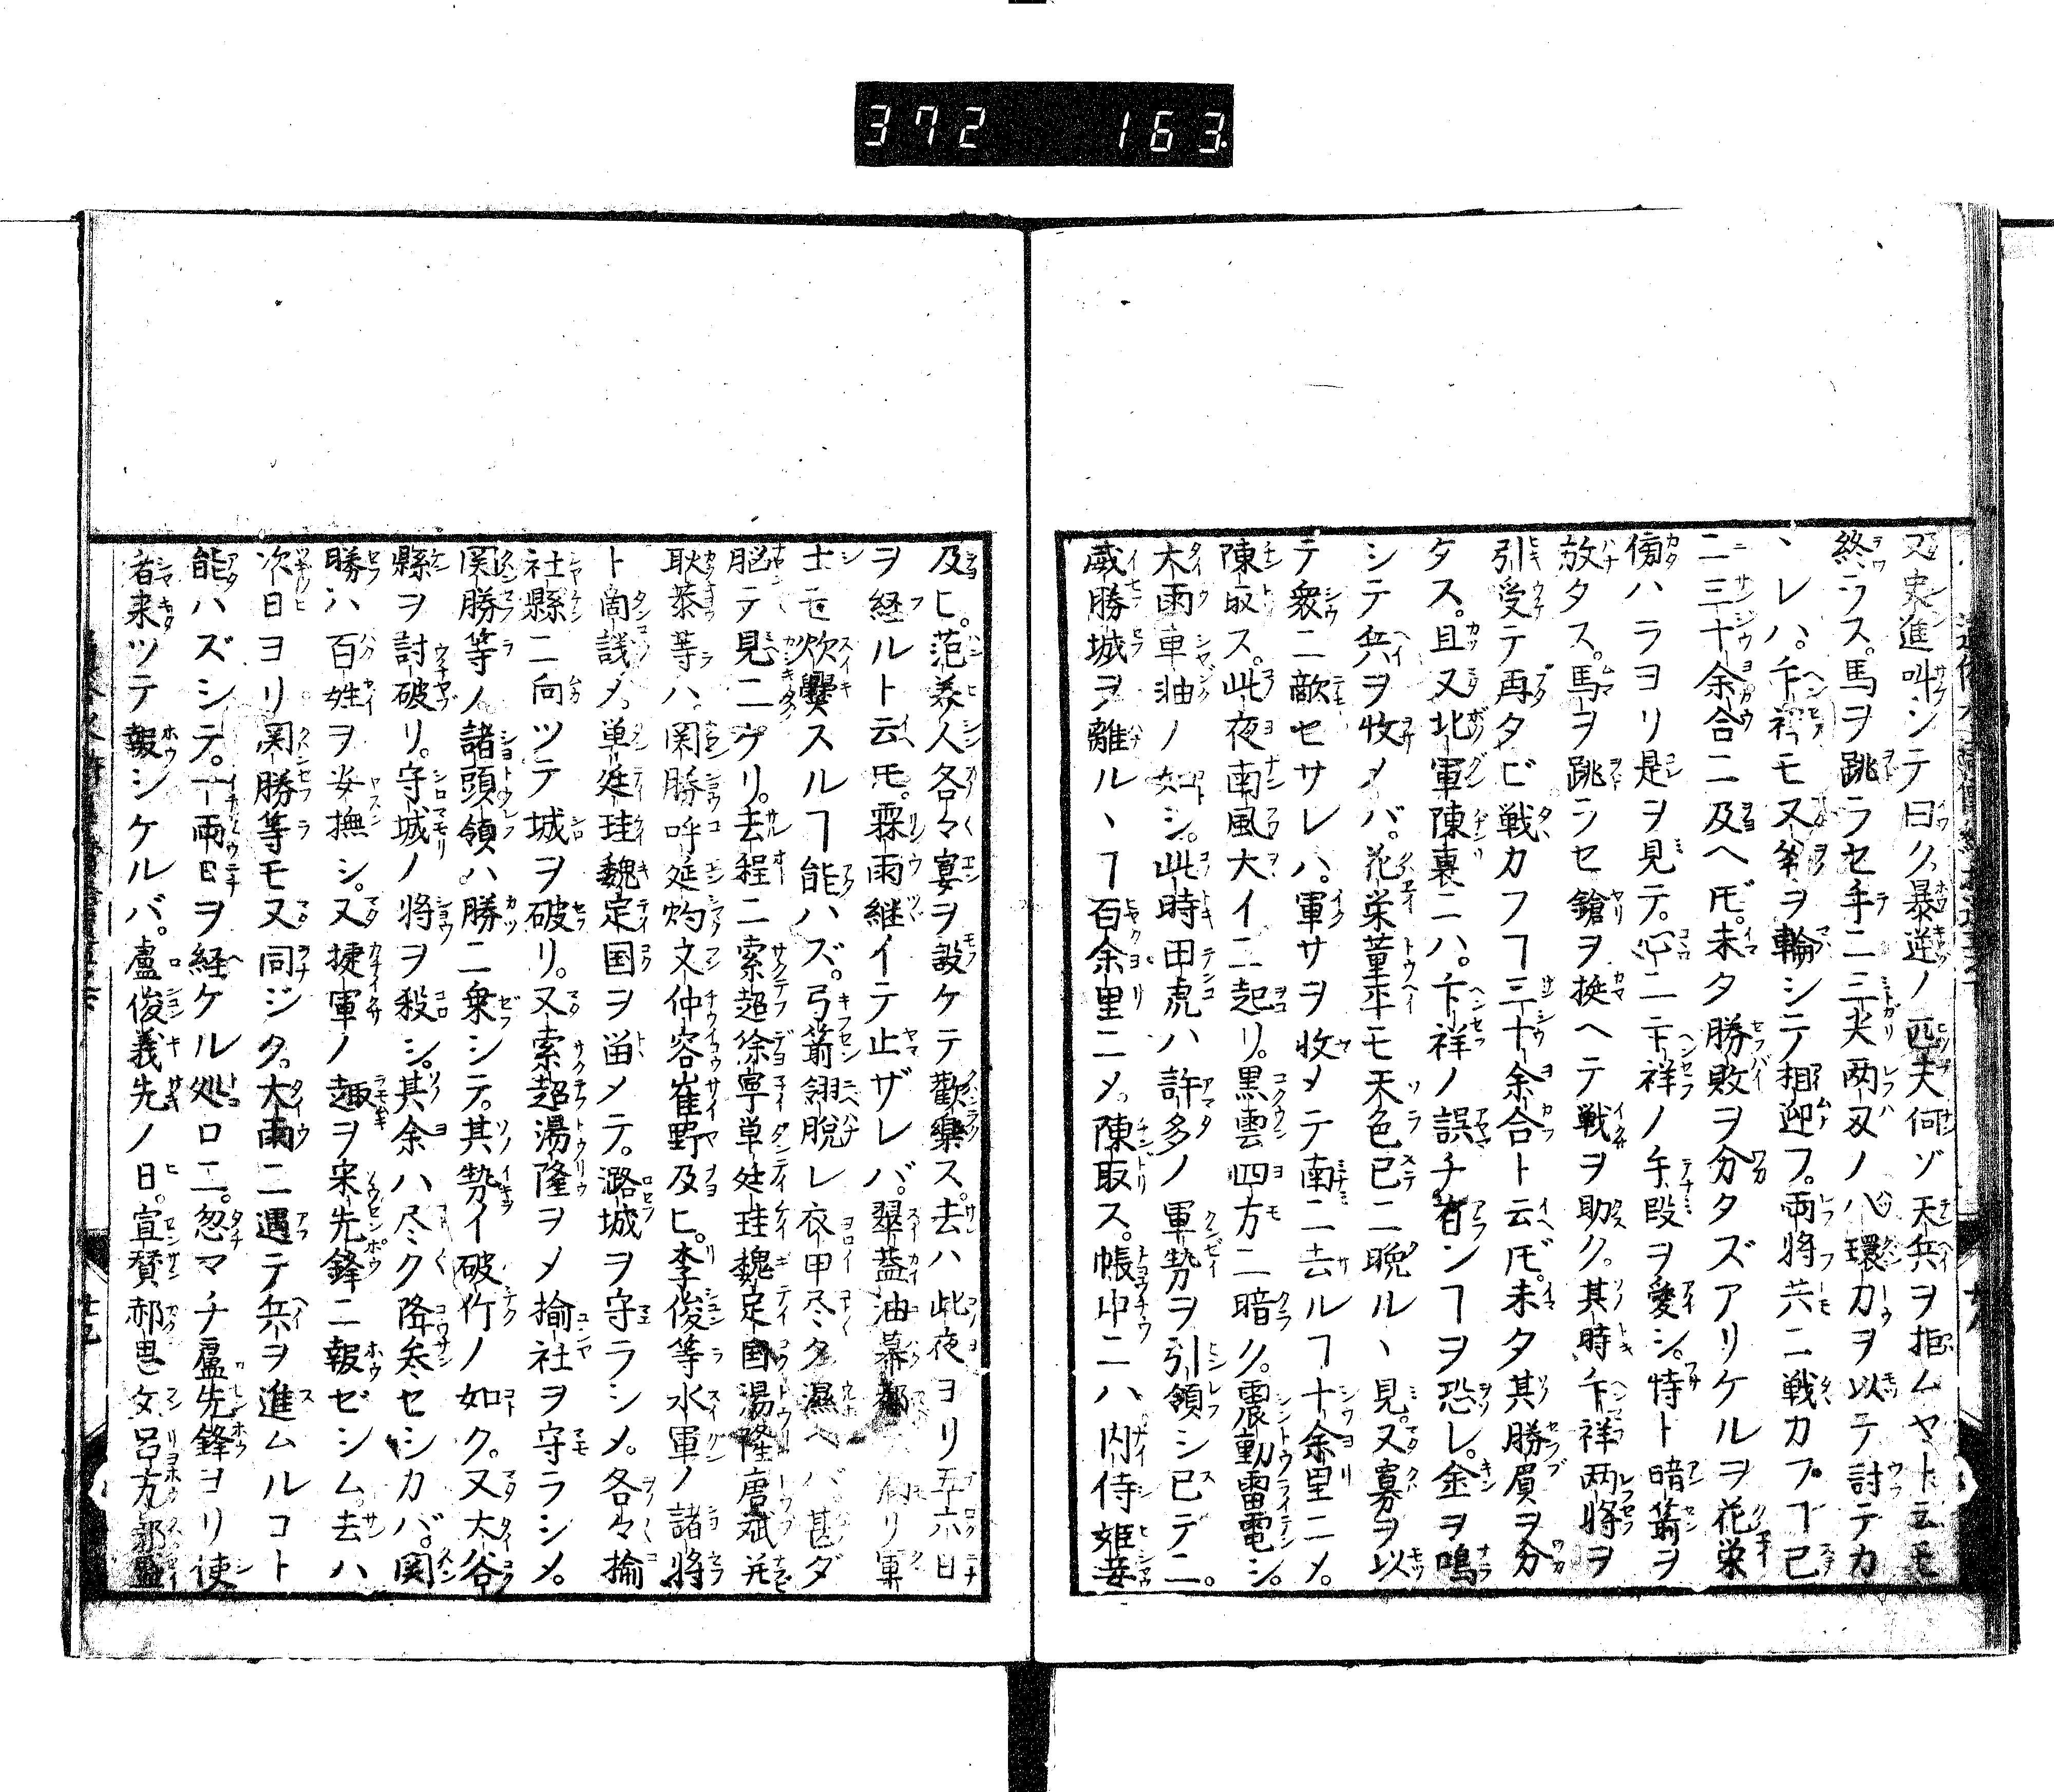 372 163
又史進叫シテ曰ク暴逆ノ匹夫何ゾ天兵ヲ拒ムヤト云モ
終ラス。馬ヲ跳ラセ手ニ三尖两刄ノ八環刀ヲ以テ討テカ
ヽレハ。卞祥モ又斧ヲ輪シテ相迎フ。両将共ニ戦カフヿ已
ニ三十余合ニ及ヘ𪜈。未タ勝敗ヲ分タズアリケルヲ花栄
傍ハラヨリ是ヲ見テ。心ニ卞祥ノ手段ヲ愛シ。特ト暗箭ヲ
放タス。馬ヲ跳ラセ鎗ヲ挺ヘテ戦ヲ助ク。其時卞祥两將ヲ
引受テ再タビ戦カフヿ三十余合ト云𪜈。未タ其勝負ヲ分
タス。且又北軍陳裏ニハ。卞祥ノ誤チ有ンヿヲ恐レ。金ヲ鳴
シテ兵ヲ收メバ。花栄董平モ天色已ニ晩ルヽ見。又寡ヲ以
テ衆ニ敵セサレハ。軍サヲ收メテ南ニ去ルヿ十余里ニメ。
陳取ス。此夜南風大イニ起リ。黒雲四方ニ暗ク。震動雷電シ。
大雨車軸ノ如シ。此時田虎ハ許多ノ軍勢ヲ引領シ已デニ。
威勝城ヲ離ルヽヿ百余里ニメ。陳取ス。帳中ニハ内侍姫妾
及ヒ。范美人各々宴ヲ設ケテ歡樂ス。去ハ此夜ヨリ五六日
ヲ経ルト云𪜈。霖雨継イテ止ザレバ。翠蓋油幕都 漏リ軍
士モ炊爨スルヿ能ハズ。弓箭翎脱レ衣甲尽タ濕ヘバ甚ダ
脳テ見ニケリ。去程ニ索超徐寧単廷珪魏定国湯隆唐斌并
耿恭等ハ。関勝呼延灼文仲容崔野及ヒ。李俊等水軍ノ諸將
ト商議メ。単廷珪魏定国ヲ畄メテ。潞城ヲ守ラシメ。各々揄
社縣ニ向ツテ城ヲ破リ。又索超湯隆ヲメ揄社ヲ守ラシメ。
関勝等ノ諸頭領ハ。勝ニ乗シテ。其勢イ破竹ノ如ク。又大谷
縣ヲ討破リ。守城ノ将ヲ殺シ。其余ハ尽ク降參セシカバ。関
勝ハ百姓ヲ安撫シ。又捷軍ノ趣ヲ宋先鋒ニ報ゼシム。去ハ
次日ヨリ関勝等モ又同ジク。大雨ニ遇テ兵ヲ進ムルコト
能ハズシテ。一兩日ヲ経ケル処ロニ。忽マチ盧先鋒ヨリ使
者来ツテ報シケルバ。盧俊義先ノ日。宣賛郝思文呂方郭盛